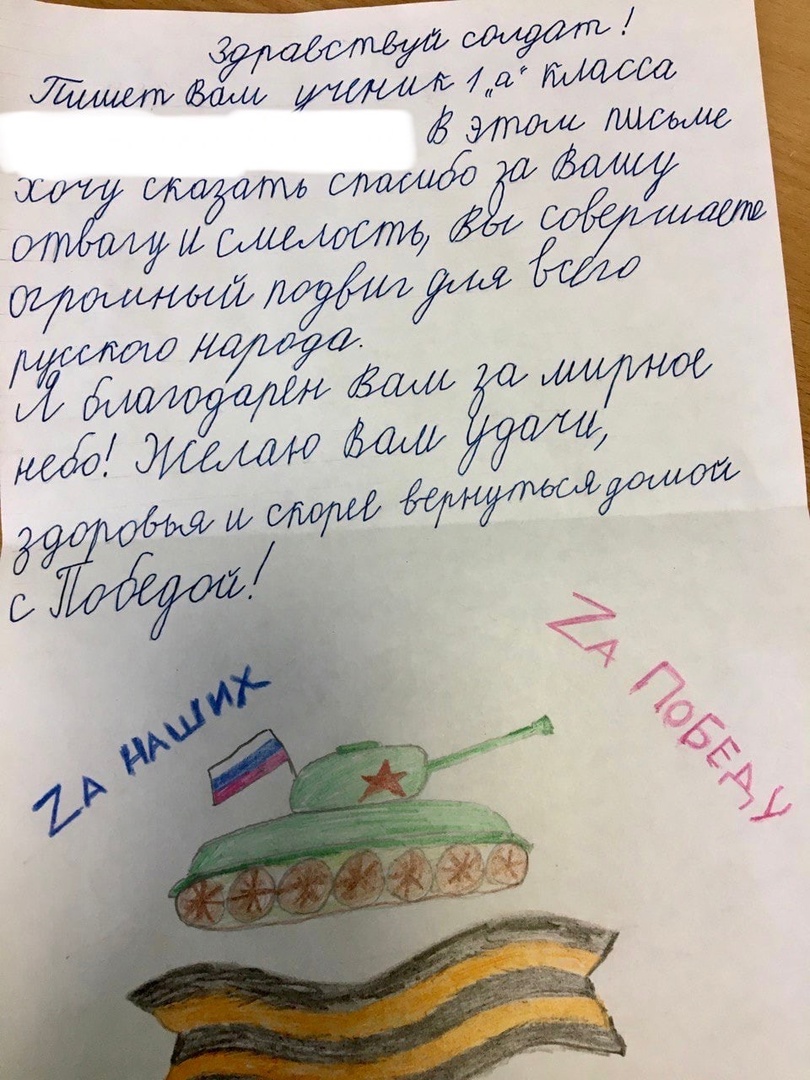 Здравствуй солдат!
Пишет Вам ученик 1 „а“ класса
В этом письме
хочу сказать спасибо за Вашу
отвагу и смелость, Вы совершаете
огромный подвиг для всего
русского народа.
Я благодарен Вам за мирное
небо! Желаю Вам удачи,
здоровья и скорее вернуться домой
с Победой!
Zа наших
Zа Победу